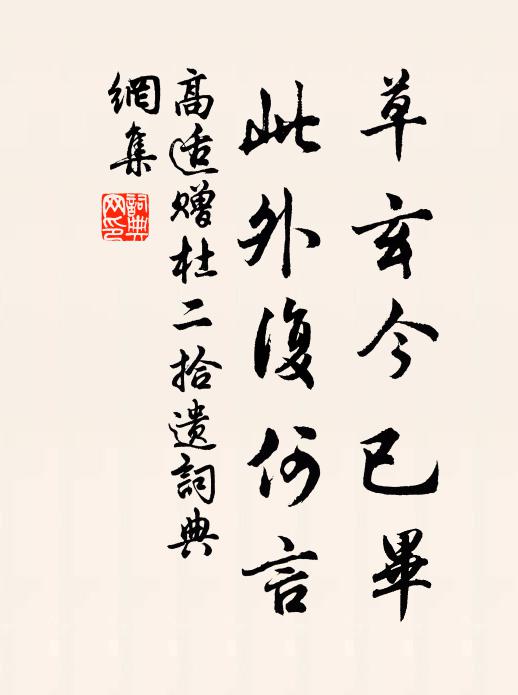 草玄今已畢
此外復何言
高适贈杜二拾遺詞典
網集
詞典
网印